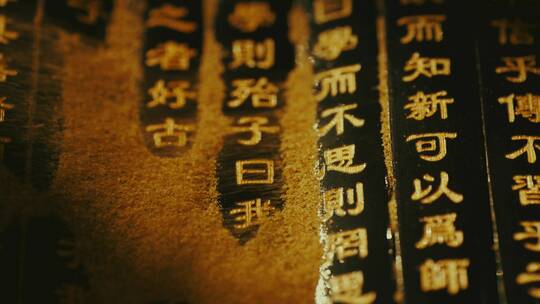 信乎傳不習乎子
而知新可以爲師
曰學而不思則罔思
學則殆子曰我
之者好古